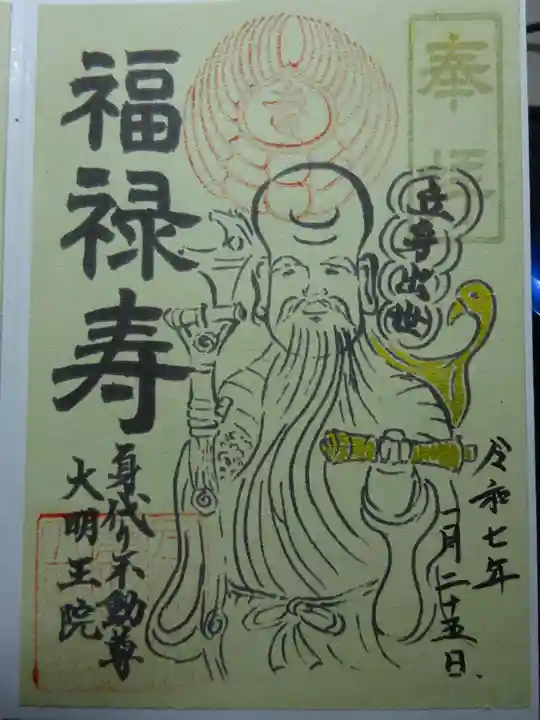 奉拝
立尊出世
令和七年
一月二十五日
福禄寿
身代り不動尊
大明王院